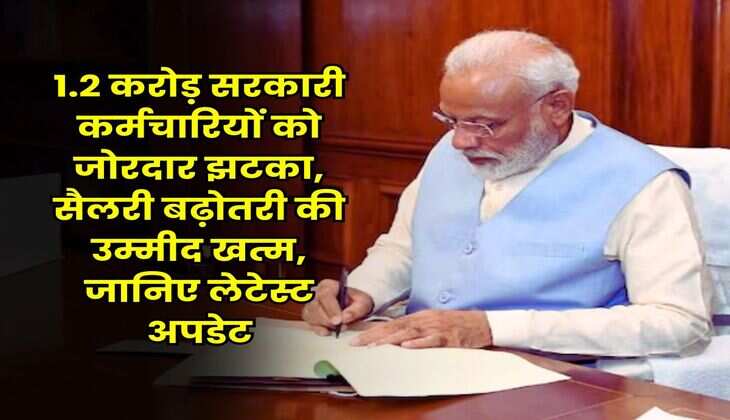 1.2 करोड़ सरकारी
कर्मचारियों को
जोरदार झटका,
सैलरी बढ़ोतरी की
उम्मीद खत्म,
जानिए लेटेस्ट
अपडेट